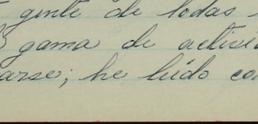 gente de todas
gama de activi
arse; he leído co